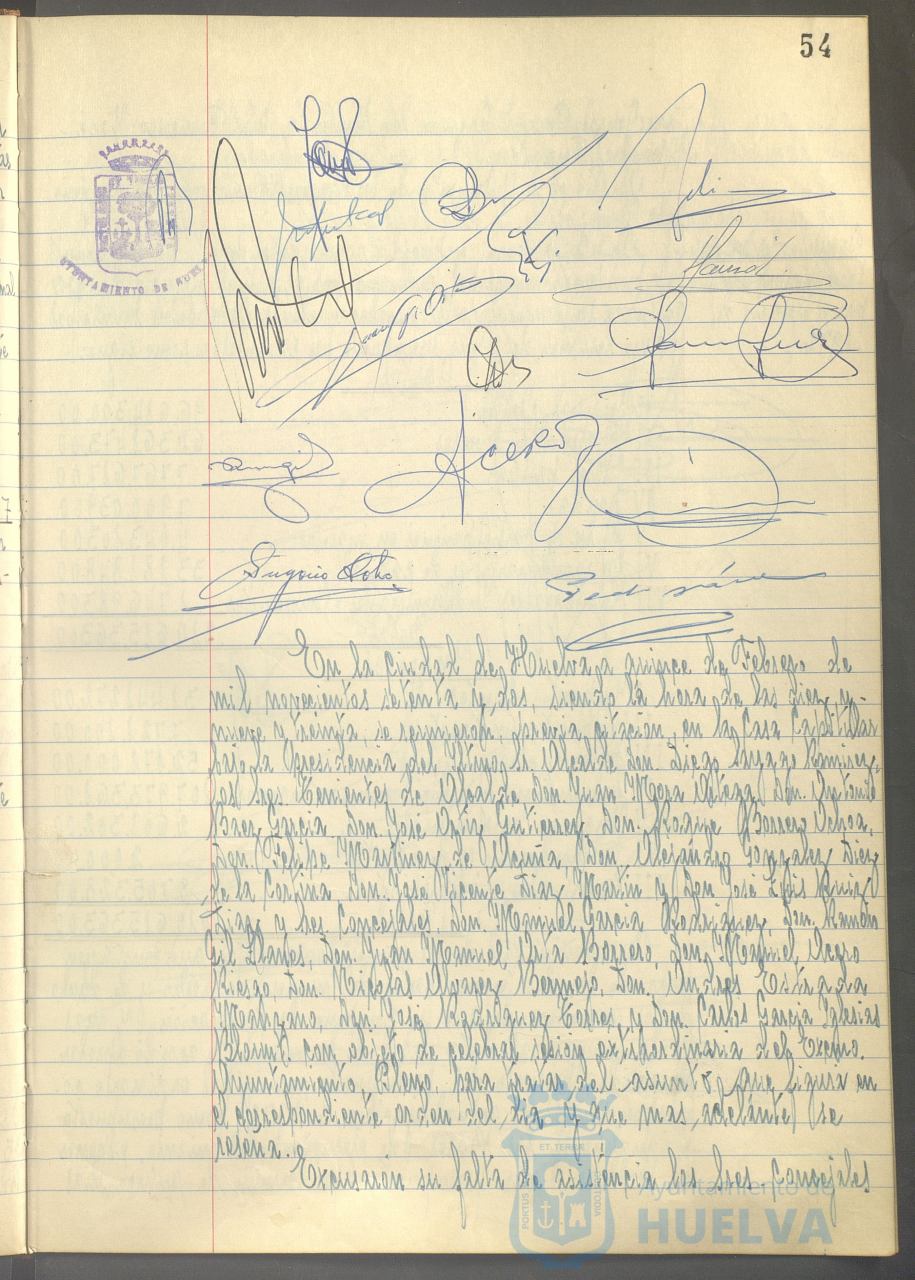 54
AYUNTAMIENTO DE HUELVA
Acero
Eugenio
En la ciudad de Huelva, a quince de Febrero de
mil novecientos setenta y dos, siendo la hora de las diez y
nueve y treinta, se reunieron, previa citación, en la Casa Capitular
bajo la Presidencia del Iltmo. Sr. Alcalde Don Diego Sayago Ramirez,
los Sres. Tenientes de Alcalde Don Juan Mora Don Antonio
Baez Garcia, Don José Ortiz Gutierrez, Don Borrero Ochoa,
Don Felipe Martinez de Acuña, Don Alejandro Gonzalez Diez
de la Cortina, Don José Vicente Diaz Martin y Don José Luis Ruiz
Diaz y Sres. Concejales, Don Manuel Garcia Rodriguez, Don Ramón
Gil Llanes, Don Juan Manuel Uria Borrero, Don Manuel Acero
Riesgo, Don Nicolas Alvarez Bermejo, Don Andres Estrada
Manzano, Don José Rodriguez Torres, y Don Carlos Garcia Iglesias
con objeto de celebrar sesión extraordinaria del Excmo.
Ayuntamiento Pleno, para tratar del asunto que figura en
el correspondiente orden del dia y que mas adelante se
reseña.
Excusaron su falta de asistencia los Sres. Concejales
PORTUS
ET TERRE
CUSTODIA
Ayuntamiento de
HUELVA